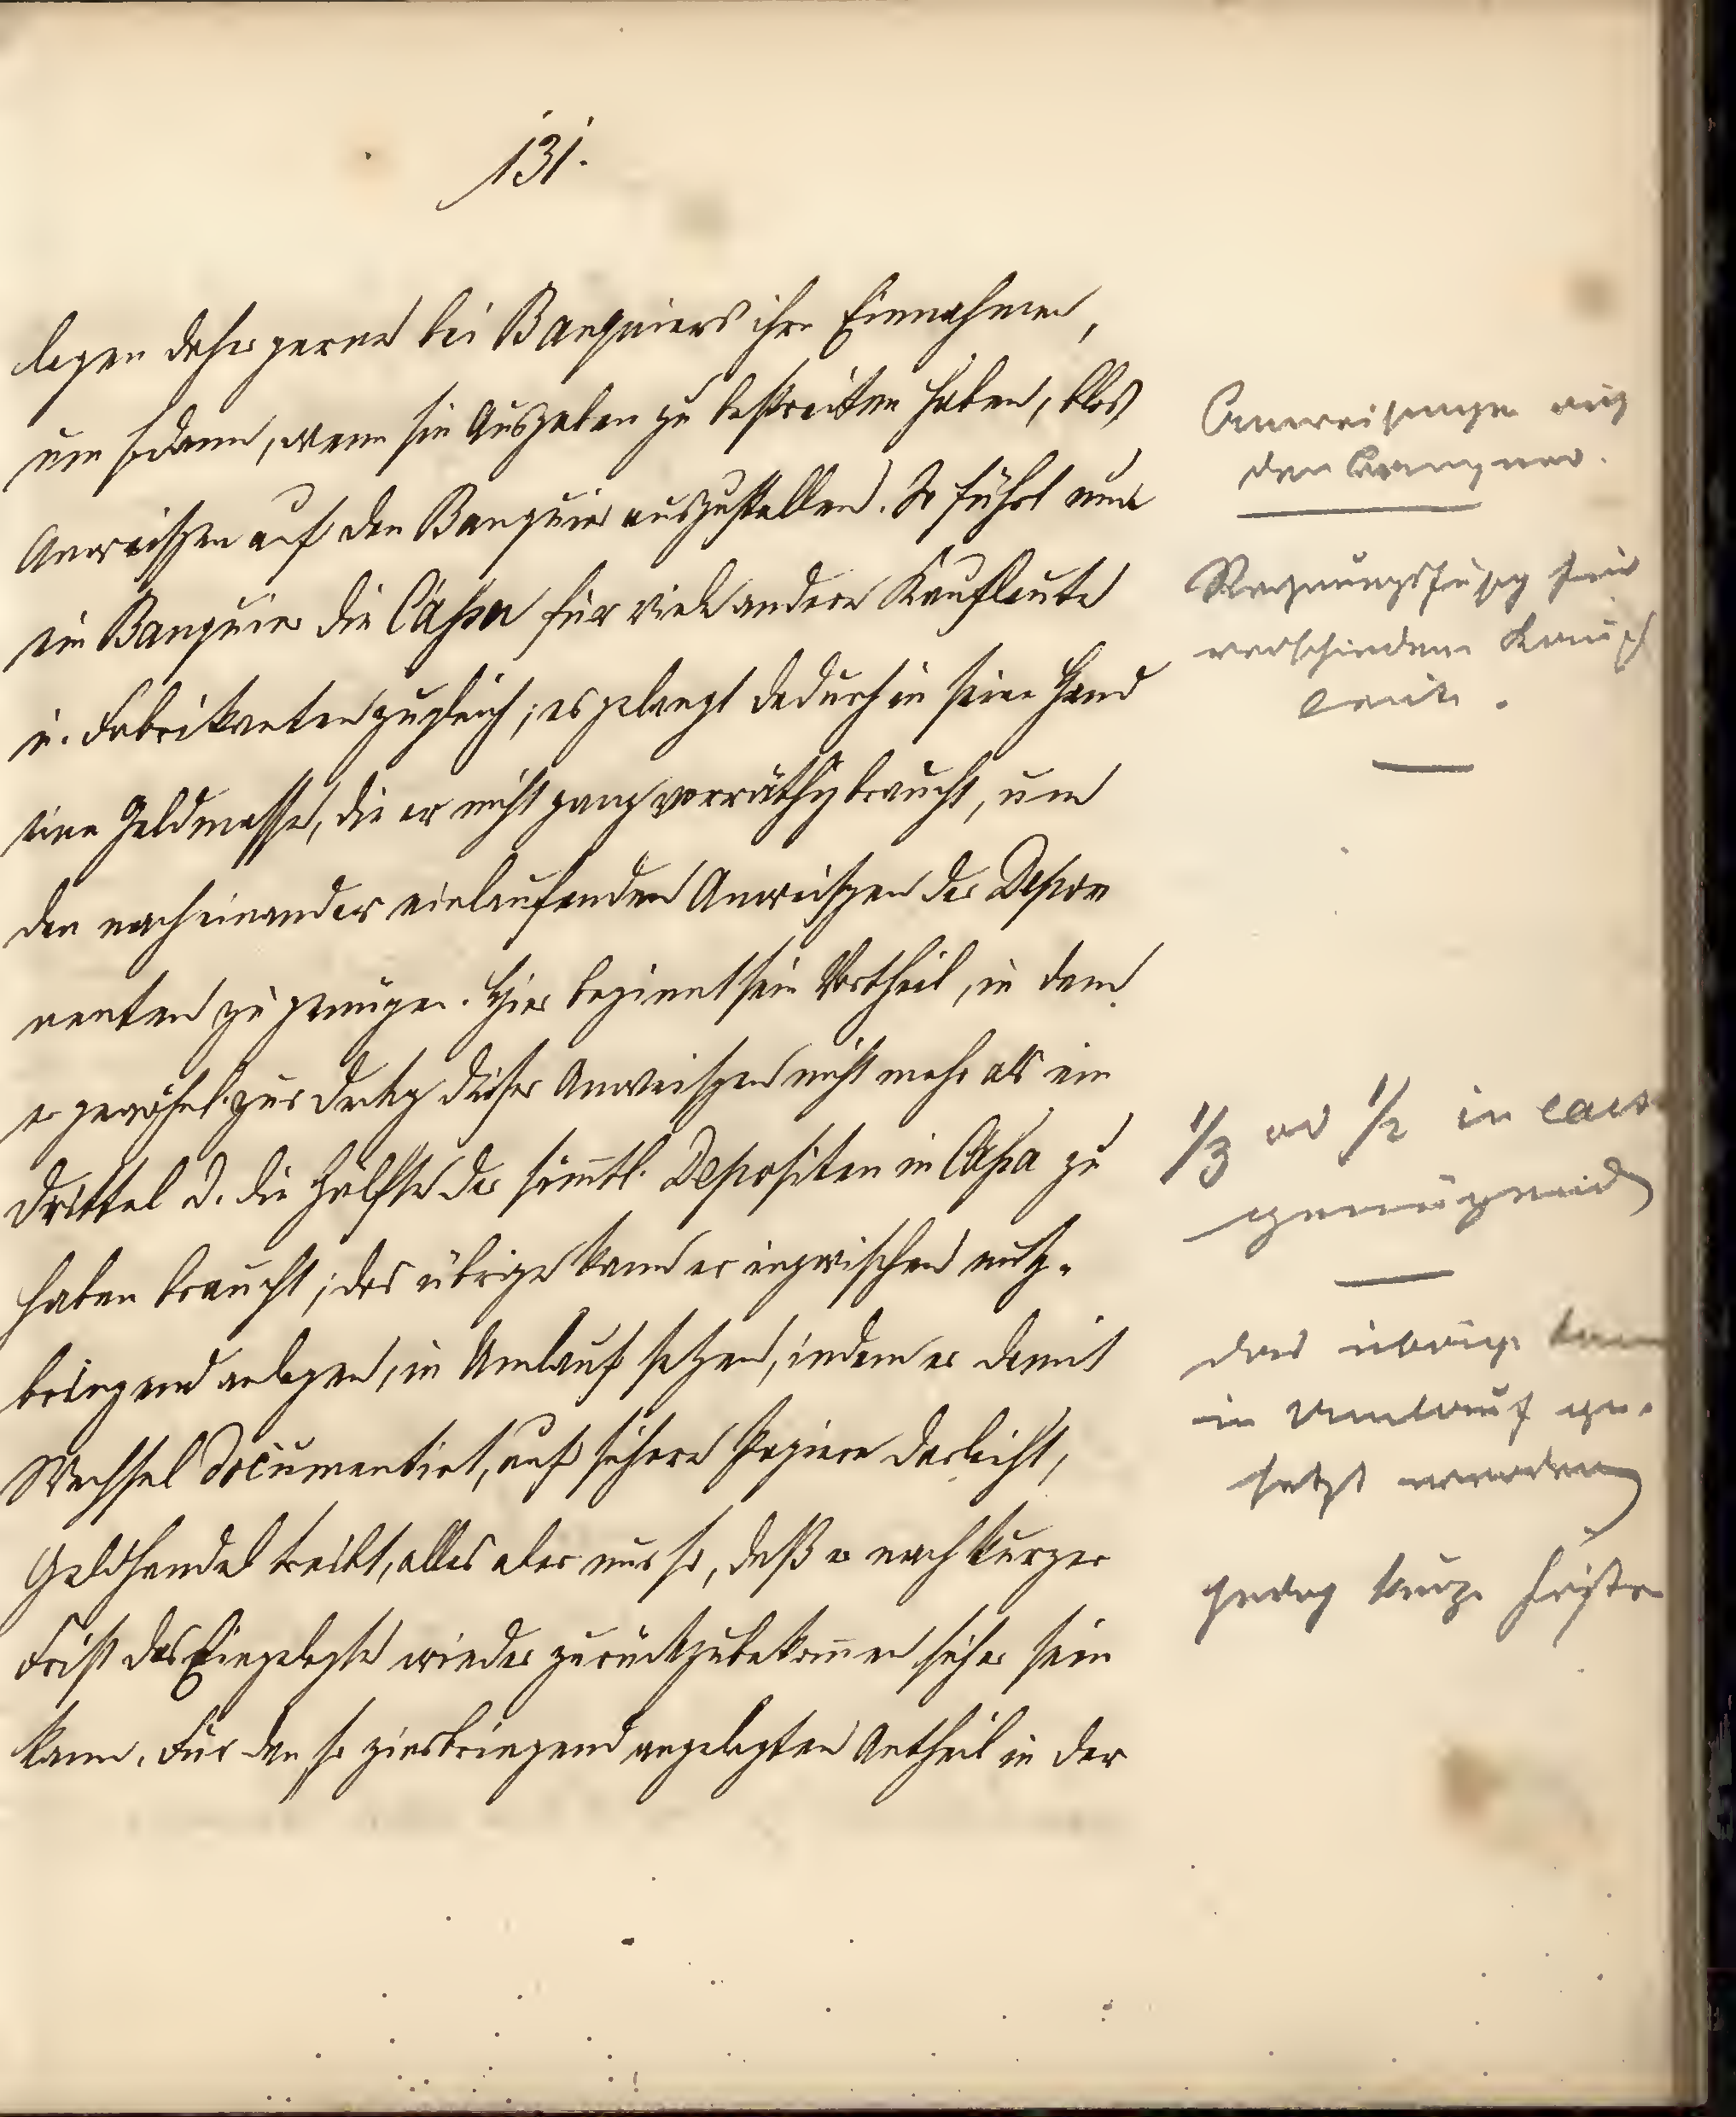 131.
legen daher gerne bei Banquiers ihre Einnahmen,
um sodann, wenn sie Ausgaben zu bestreiten haben, blos
Anweisgen auf den Banquier auszustellen. So führt nun
ein Banquier die Cassa für viele andere Kaufleute
u. Fabrikanten zugleich; es gelangt dadurch in seine Hand
eine Geldmasse, die er nicht ganz vorräthig braucht, um
den nacheinander einlaufenden Anweisgen der Depo
nenten zu genügen. Hier beginnt sein Vortheil, in dem
er gewöhnl. zur Deckg dieser Anweisgen nicht mehr als ein
Drittel o. die Hälfte der sämtl. Depositen in Cassa zu
haben braucht; das übrige kann er inzwischen nutz-
bringend anlegen, in Umlauf setzen, indem er damit
Wechsel documentirt, auf sichere Papiere darleiht,
Geldhandel treibt, alles aber nur so, daß er nach kurzer
Frist das Eingelegte wieder zurückzubekommen sicher sein
kann. Für den so zinsbringend angelegten Antheil in der
Anweisungen auf
den Banquier.
Rechnungsführg für
verschiedene Kauf
leute.
1/3 od 1/2 in cassa
genügend
das übrige kann
in Umlauf ge-
setzt werden
kurze Fristen